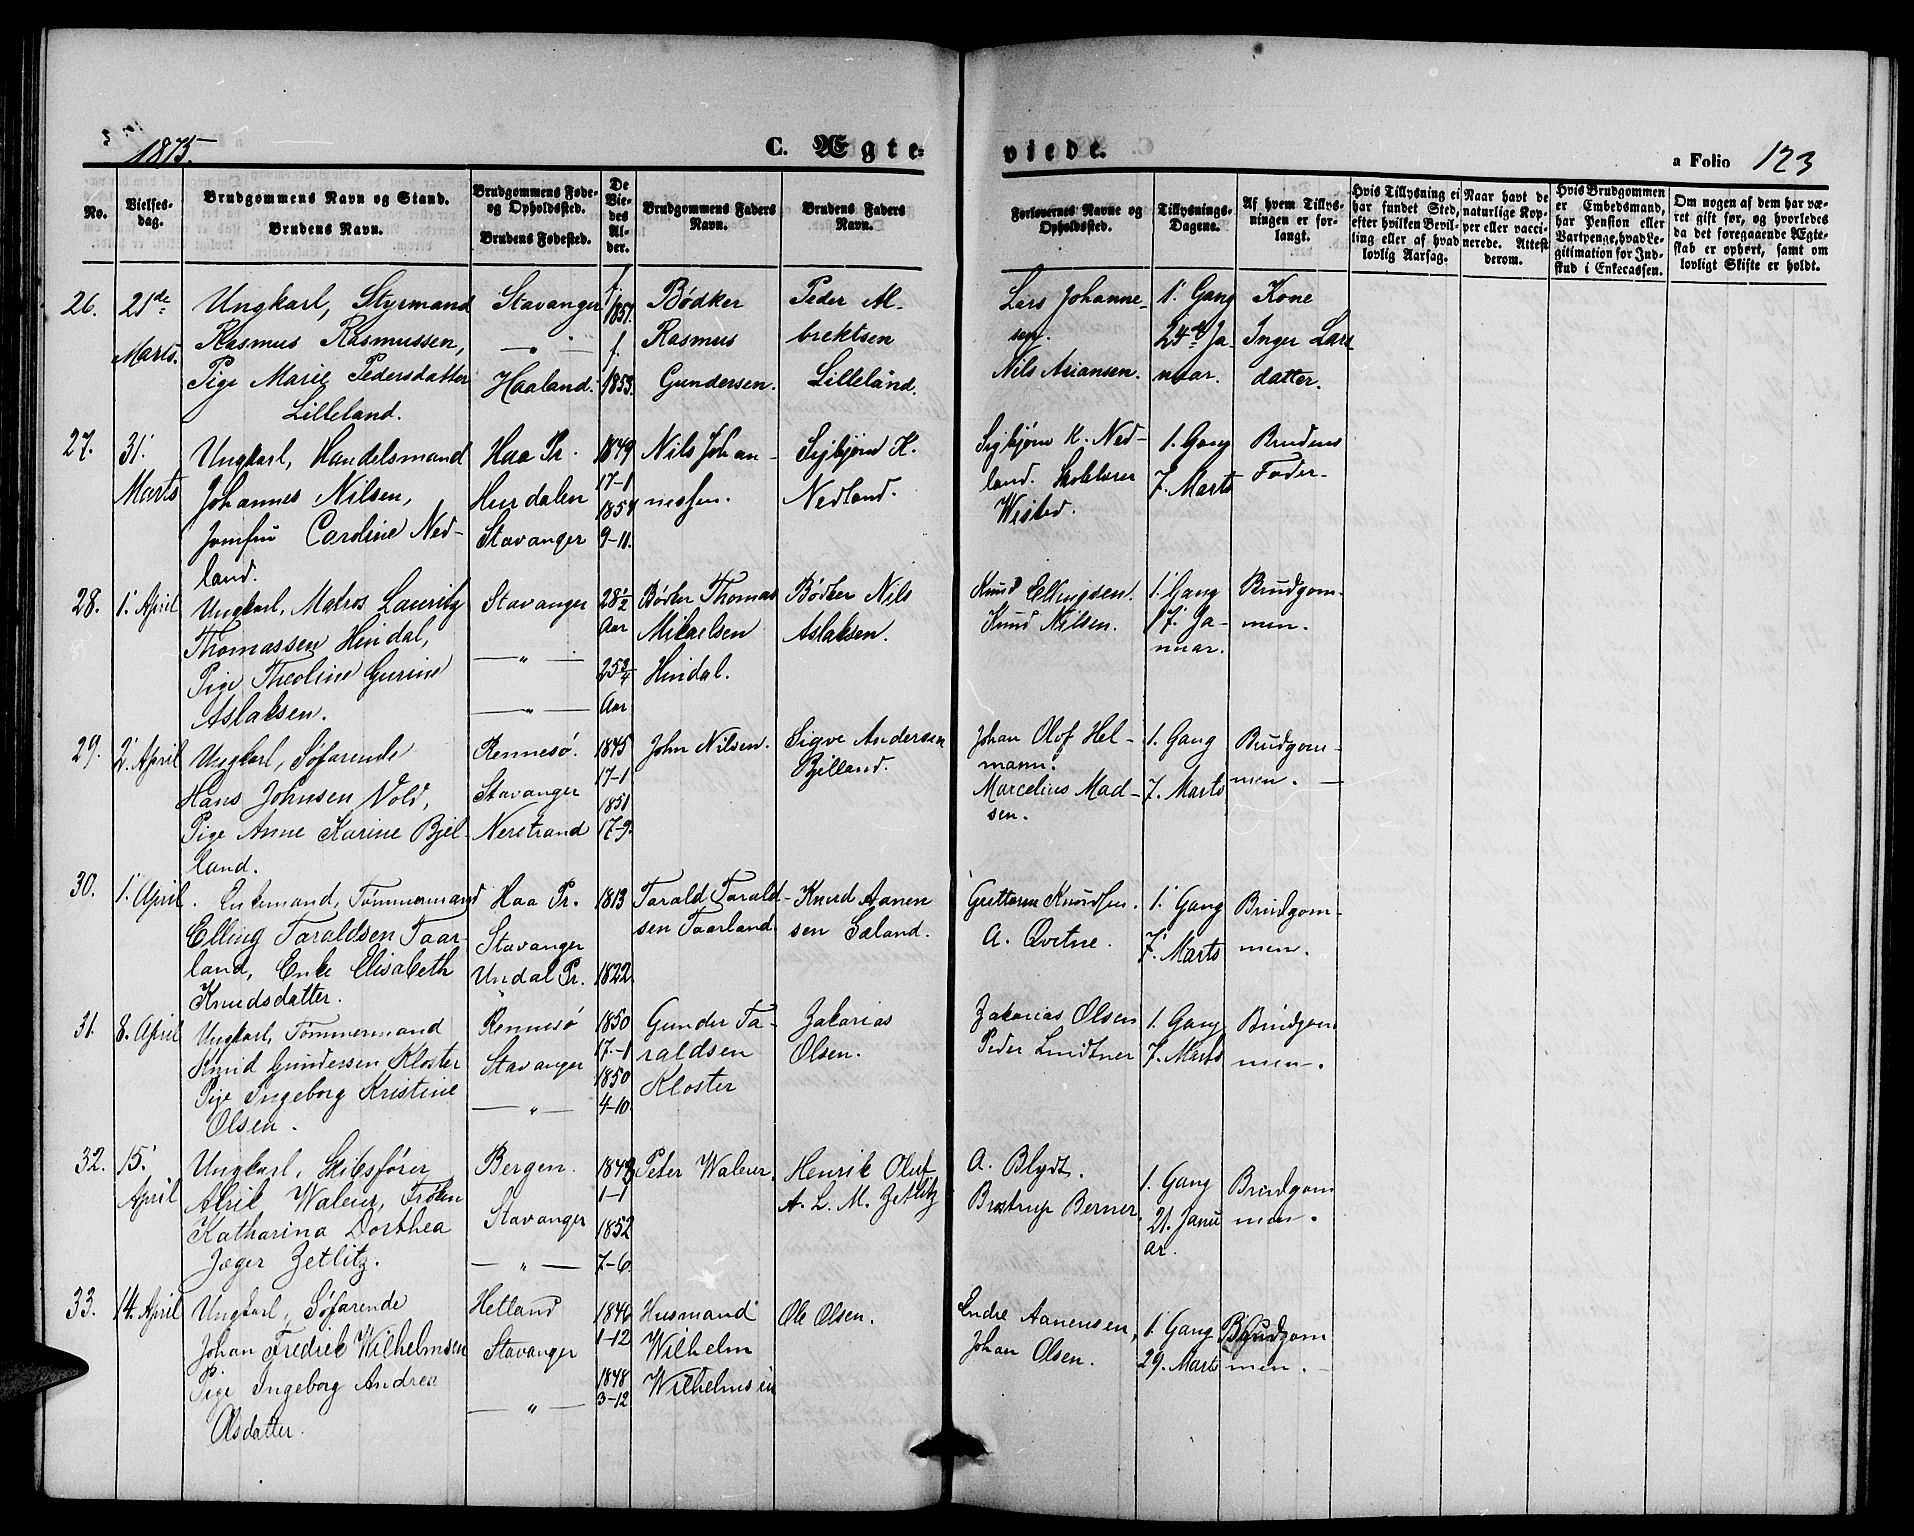 1875.
C. Ægte=
viede.
a Folio 123
No.
Vielses-
dag.
Brudgommens Navn og Stand.
Brudens Navn.
Brudgommens Føde-
og Opholdsted.
Brudens Fødested.
De
Vie-
des
Al-
der.
Brudgommens Faders
Navn.
Brudens Faders
Navn.
Forlovernes Navne og
Opholdsted.
Tillysnings-
Dagene.
Af hvem Tillys-
ningen er for-
langt.
Hvis Tillysning ei
har fundet Sted,
efter hvilken Bevil-
ling eller af hvad
lovlig Aarsag.
Naar havt de
naturlige Kop-
per eller vacci-
nerede. Attest
derom.
Hvis Brudgommen
er Embedsmand,
har Pension eller
Vartpenge, hvad Le-
gitimation for Ind-
skud i Enkecassen.
Om nogen af dem har væ-
ret gift før, og hvorledes
da det foregaaende Ægte-
skab er ophørt, samt om
lovligt Skifte er holdt.
26.
21de
Marts.
Ungkarl, Styrmand
Rasmus Rasmussen,
Pige Marie Pedersdatter
Lilleland.
Stavanger
— „ —
Haaland.
f.
1851.
f.
1853.
Bødker
Rasmus
Gundersen.
Peder Al-
brektsen
Lilleland.
Lars Johanne-
sen.
Nils Asiansen.
1. Gang
24de Ja-
nuar.
Kone
Inger Lars
datter.
27.
31.
Marts
Ungkarl, Handelsmand
Johannes Nilsen,
Jomfru Caroline Ned-
land.
Haa Pr.
Hurdalen
Stavanger
1849
17-1
1854
9-11.
Nils Johan-
nessen.
Sigbjørn K.
Nedland.
Sigbjørn K. Ned-
land. Skolelærer
Wisted.
1. Gang
7. Marts
Brudens
Fader-
28.
1. April
Ungkarl, Matros Lauritz
Thomassen Hindal,
Pige Theoline Gurine
Aslaksen.
Stavanger
— „ —
— „ —
28 1/2
Aar
25 3/4
Aar
Bødker Thomas
Mikaelsen
Hindal.
Bødker Nils
Aslaksen.
Knud Ellingsen.
Knud Nilsen.
1. Gang
17. Ja-
nuar.
Brudgom-
men.
29.
2. April
Ungkarl, Søfarende
Hans Johnsen Vold,
Pige Anne Karine Bjel-
land.
Rennesø.
Stavanger
Nerstrand
1845
17-1
1851
17-9.
John Nilsen.
Sigve Andersen
Bjelland.
Johan Olof Hel-
mann.
Marcelius Mad-
sen.
1. Gang
7. Marts
Brudgom-
men. —
30.
1. April
Enkemand, Tømmermand
Elling Taraldsen Taar-
land, Enke Elisabeth
Knudsdatter.
Haa Pr.
Stavanger
Undal Pr.
1813
1822
Tarald Tarald-
sen Taarland.
Knud Aanen
sen Sæland.
Guttorm Knudsen.
A. Qvitne.
1. Gang
7. Marts
Brudgom-
men.
31.
8. April
Ungkarl, Tømmermand
Knud Gundersen Kloster
Pige Ingeborg Kristine
Olsen.
Rennesø
Stavanger
— „ —
1850
17-1
1850
4-10.
Gunder Ta-
raldsen
Kloster
Zakarias
Olsen.
Zakarias Olsen
Peder Lindtner
1. Gang
7. Marts
Brudgom-
men-.
32.
15.
April
Ungkarl, Skibsfører
Alrik Waleur, Frøken
Katharina Dorthea
Jæger Zetlitz.
Bergen.
Stavanger
— „ —
1848
1-1
1852
7-6
Peter Waleur.
Henrik Oluf
A. L. M. Zetlitz
A. Blydt.
Brostrup Berner.
1. Gang
21. Janu
ar.
Brudgom
men.
33.
14. April
Ungkarl, Søfarende
Johan Fredrik Wilhelmsen
Pige Ingeborg Andrea
Olsdatter.
Hetland
Stavanger
— „ —
1846
1-12
1848
3-12
Husmand
Wilhelm
Wilhelmsen
Ole Olsen.
Endre Aanensen,
Johan Olsen.
1. Gang
29. Marts
Brudgom
men. -